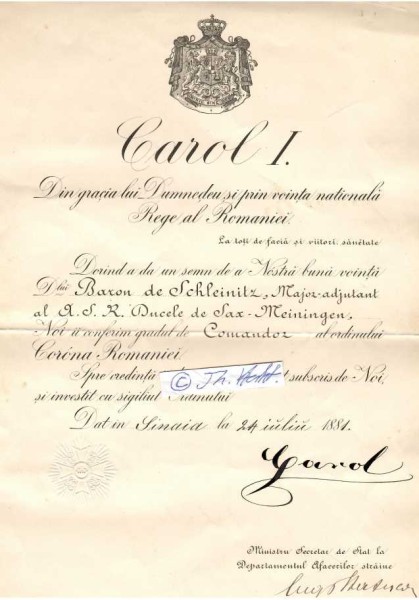 Carol I.
Din gracia lui Dumnedeu și prin voința națională
Rege al Romaniei.
La toți de facia și viitori, sănĕtate
Dorind a da un semn de a Nostră bună voință
D lui Baron de Schleinitz, Major-adjutant
al A.S.R. Ducele de Sax-Meiningen,
Noi îi conferim gradul de Comandor al ordinului
Coróna Romaniei.
Spre credința subscris de Noi,
și investit cu sigiliul Statului
© Th. Hoff.
Dat in Sinaia la 24 iŭliŭ 1881.
Carol
Ministru Secretar de Stat la
Departamentul Afacerilor străine